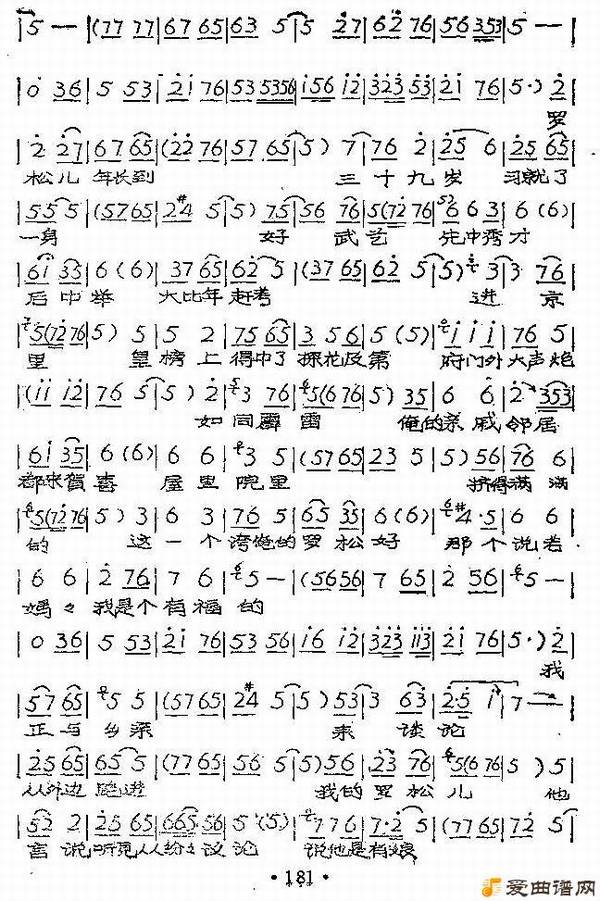 5 — | (77 77 | 67 65 | 63 5 | 5 27 | 62 76 | 56 353 | 5 — |
| 0 36 | 5 53 | 21 76 | 53 5356 | i56 i2 | 323 53 | 21 76 | 5·) 2 |
罗
2 27 | 67 65 | (22 76 | 57 65 | 5) 7 | 76 2 | 25 6 | 25 65 |
松儿 年长到 三十九岁 习就了
| 55 5 | (57 65 | 24 5 | 5) 75 | 56 76 | 5(72 76 | 6 6 3 | 6 (6) |
一身 好 武艺 先中秀才
| 6i 35 | 6 (6) | 37 65 | 62 5 | (37 65 | 62 5 | 5) 3 | 3 76 |
后中举 大比年赶考 进 京
| 5(72 76 | 5) 5 | 5 2 | 75 65 | 3 56 | 5 (5) | i i i | 76 5 |
里 皇榜上得中了探花及第 府门外大声炮
| (ii i2 | 76 5 | 5) 2 | 3 76 | 5(6 76 | 5) 35 | 6 6 | 2 353 |
如同霹雷 俺的亲戚邻居
| 6i 35 | 6 (6) | 6 6 | 3 5 | (57 65 | 23 5 | 5) 56 | 76 6 |
都来贺喜 屋里院里 挤得满满
| 5(72 76 | 5) 3 | 6 3 | 76 5 | 65 35 | 6 (6) | 4·5 | 6 6 |
的 这一个夸俺的罗松好 那个说老
| 6 6 | 2 76 | 7 6 | 5 — | (56 56 | 7 65 | 2 56 | 5 — |
妈々 我是个有福的
| 0 36 | 5 53 | 21 76 | 53 56 | i6 i2 | 323 iii | 21 76 | 5·) 2 |
我
| 57 65 | 5 5 | (57 65 | 24 5 | 5) 53 | 3 63 | 2·5 i | 7 — |
正与乡亲 来 谈论
| 25 65 | 65 5 | (77 65 | 56 5 | 5) 56 | 23 76 | 5(6 76 | 5) 5 |
从外边 进 我的罗松儿 他
| 52 2 | 25 65 | 665 56 | 5 (5) | 77 6 | 7·2 5 | (77 65 | 72 5 |
言说听见人人纷々议论 说他是有娘
· 181 ·
爱曲谱网